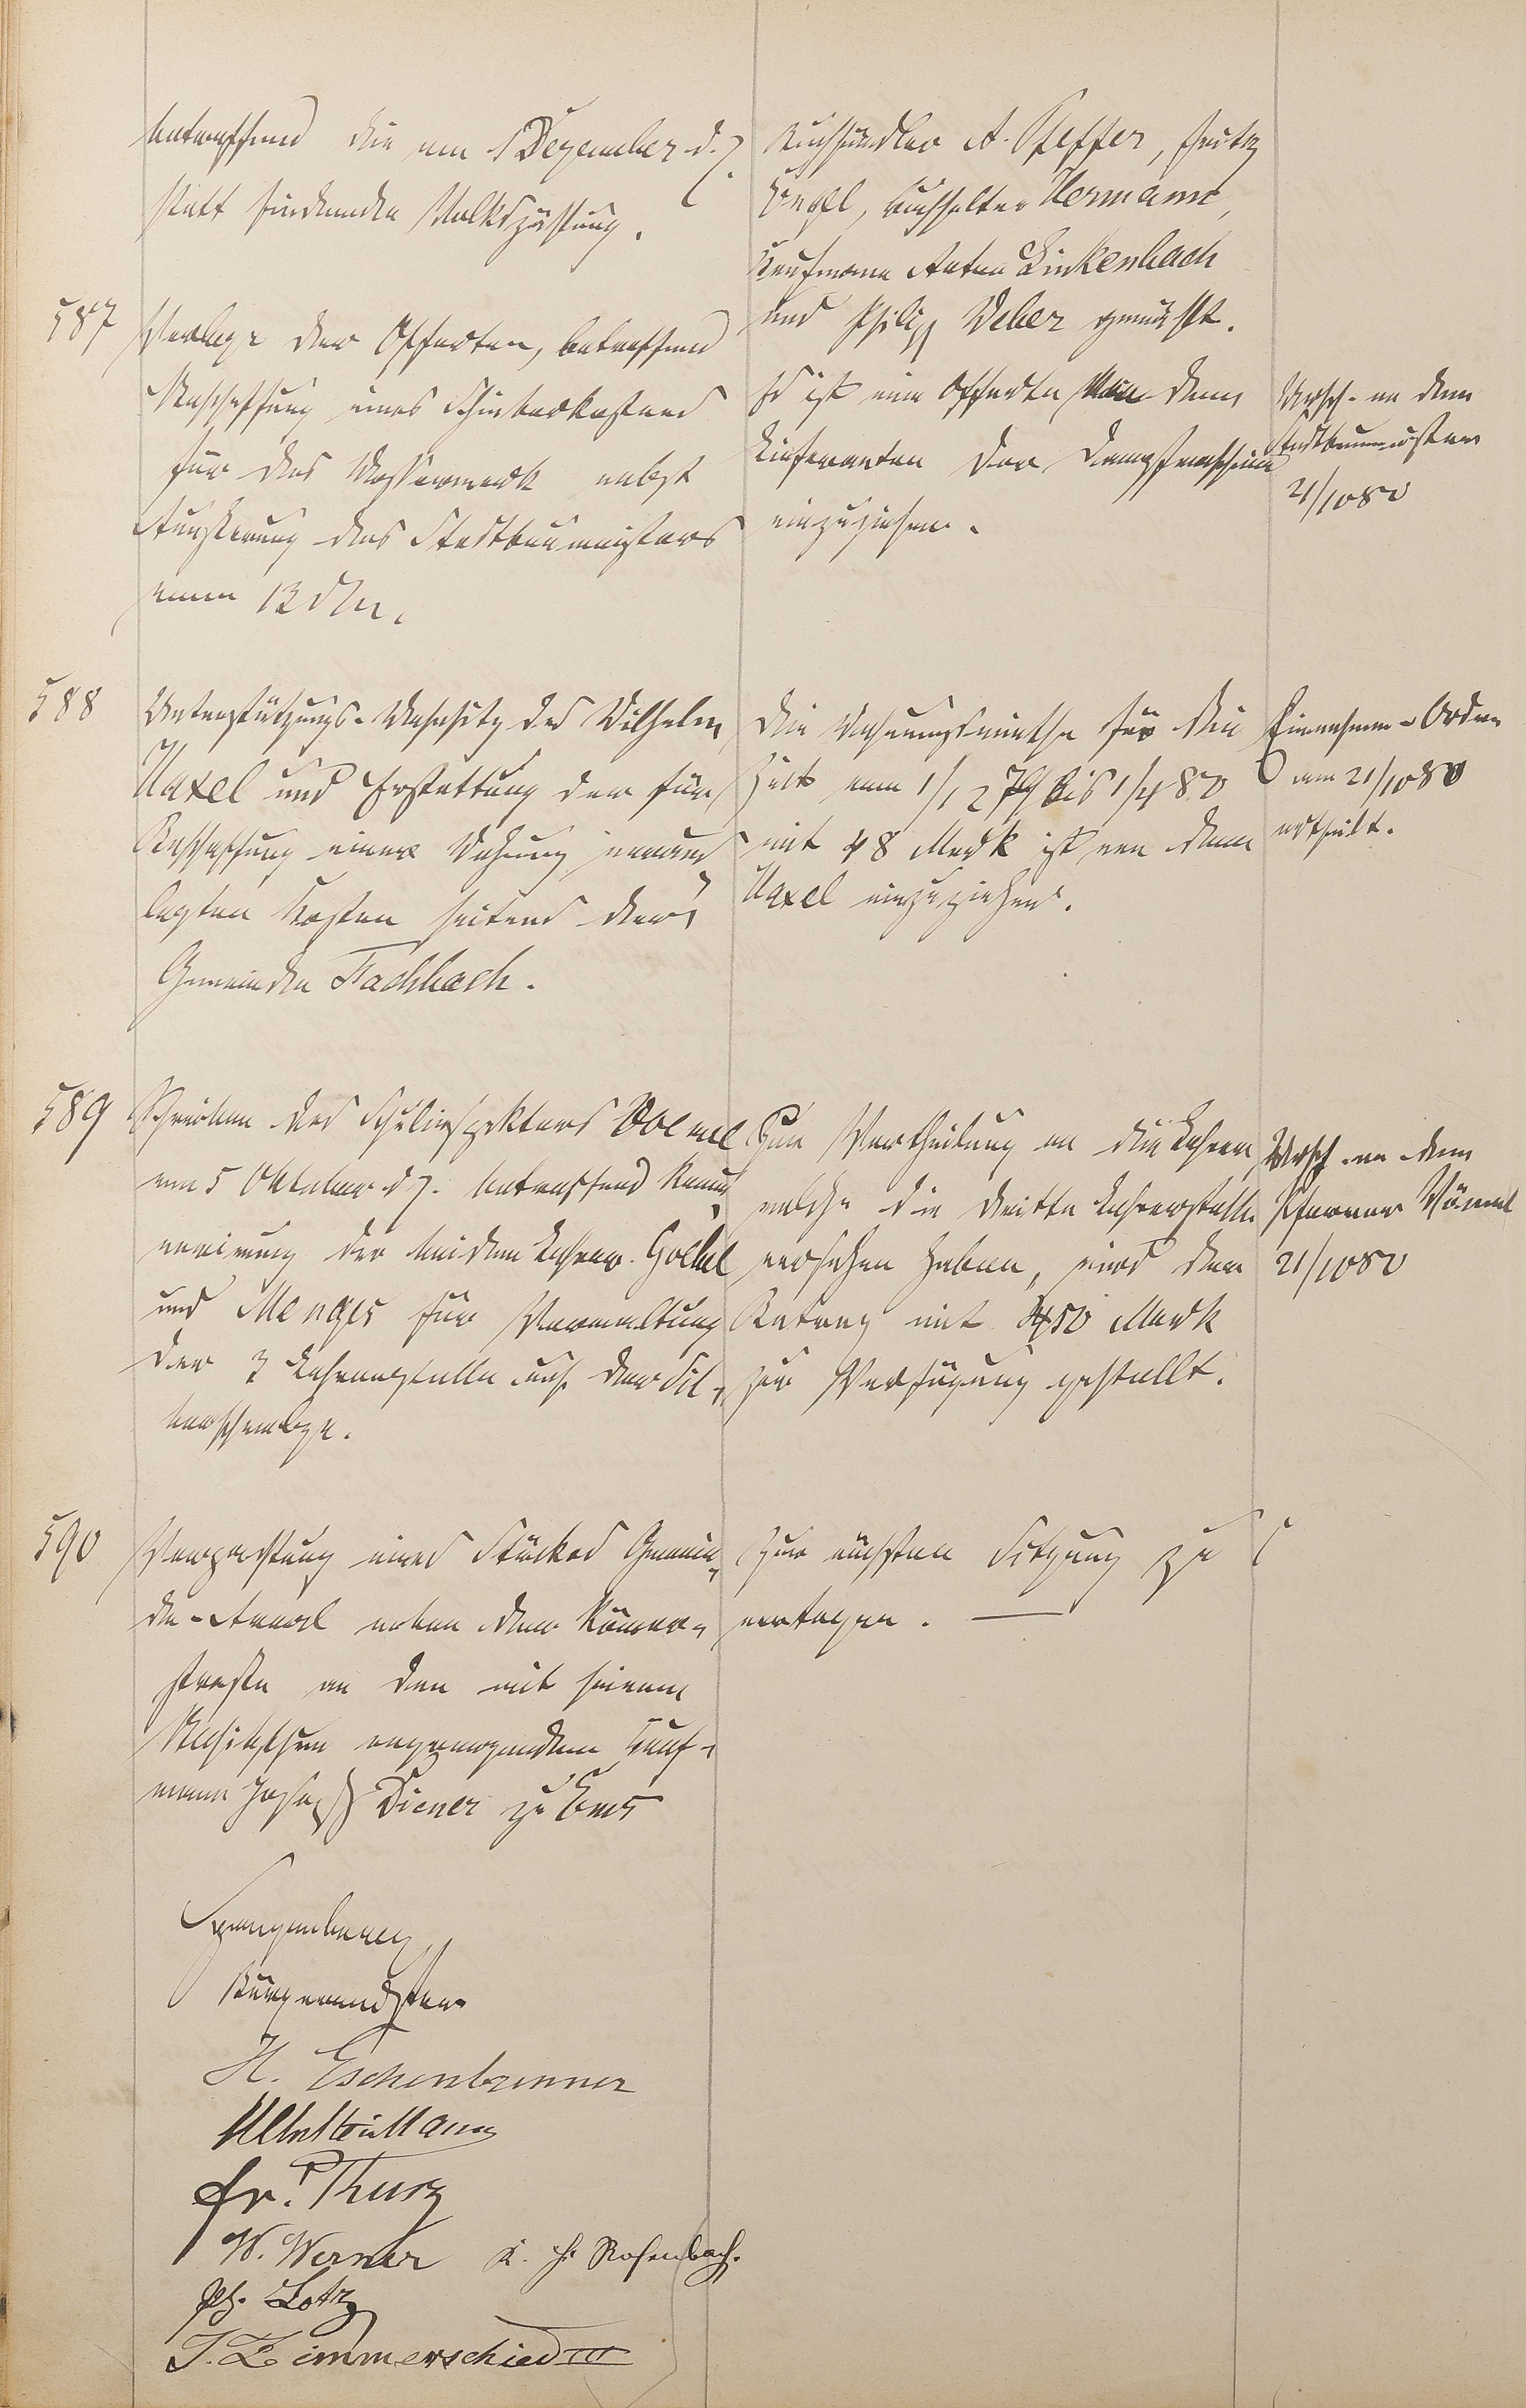 betreffend die am 1 Dezember d. J.
statt findende Volkszählung.
Buchhändler A. Pfeffer, Fritz
Vogel, Buchhalter Hermann,
Kaufmann Anton Linkenbach
und Philipp Weber gewählt.
587
Vorlage der Offerten, betreffend
Anschaffung eines Schieberkastens
für das Wasserwerk nebst
Äußerung des Stadtbaumeisters
vom 13 d Mts.
Es ist eine Offerte von dem
Lieferanten der Dampfmaschine
einzuziehen.
Abschr. an den
Stadtbaumeister
21/10 80
588
Unterstützungs-Wohnsitz des Wilhelm
Naxel und Erstattung der für
Beschaffung einer Wohnung veraus-
lagten Kosten seitens der
Gemeinde Fachbach.
Die Wohnungsmiethe für die
Zeit vom 1/12 79 bis 1/4 80
mit 48 Mark ist von dem
Naxel einzuziehen.
Einnahme-Ordre
vom 21/10 80
ertheilt.
589
Schreiben des Schulinspektors Voemel
vom 5 Oktober d J. betreffend Remu-
nerirung der beiden Lehrer Goebel
und Menges für Verwaltung
der 3 Lehrerstelle auf der Sil-
berschmelze.
Zur Vertheilung an die Lehrer
welche die dritte Lehrerstelle
versehen haben, wird der
Betrag mit 450 Mark
zur Verfügung gestellt.
Abschr. an den
Pfarrer Vömel
21/10 80
590
Verpachtung eines Stückes Gemein-
de-Areal neben der Römer-
straße an den mit seinem
Besitzthum angrenzenden Kauf-
mann Joseph Diener zu Ems
Zur nächsten Sitzung zu
vertagen. —
Spangenberg
Bürgermeister
H. Eschenbrenner
Fr. Thurz
W. Werner K. H. Rosenbach.
Ph. Lotz
J. Zimmerschied III